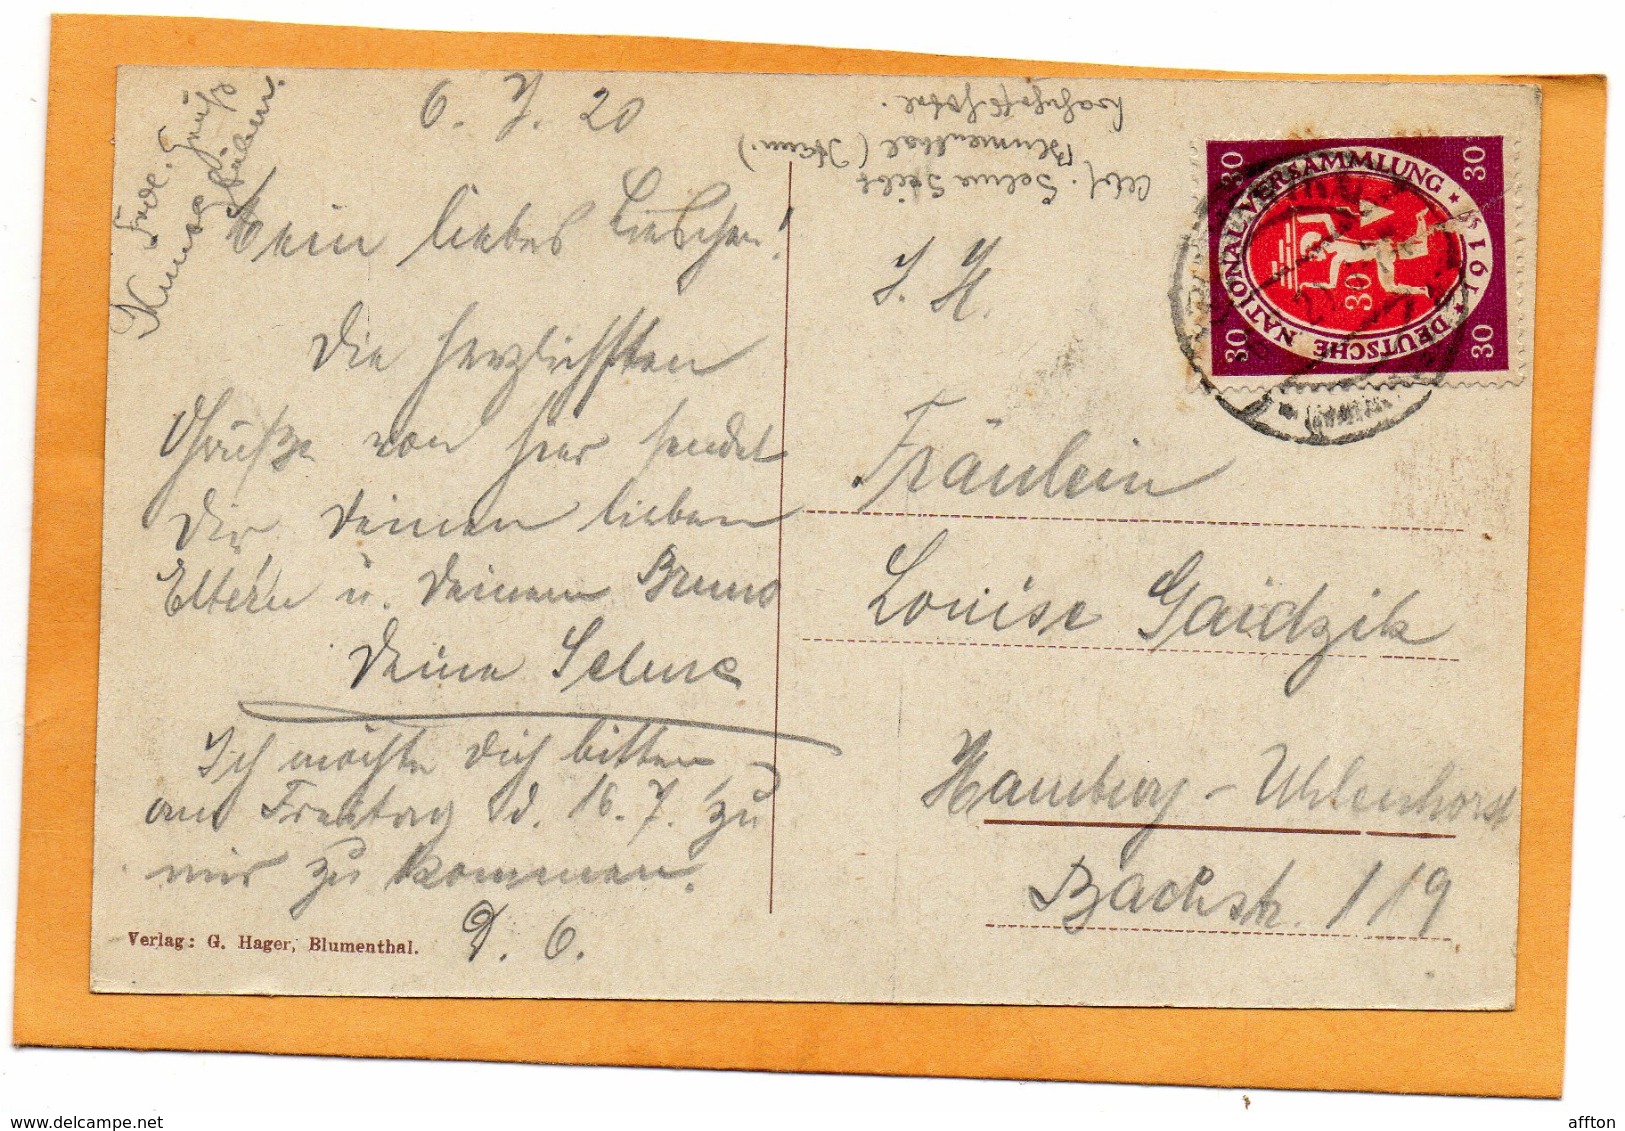 6. 7. 20
Mein liebes Lieschen!
Die herzlichsten
Grüße von hier sendet
Dir, deinen lieben
Eltern u. deinem Bruno
deine Selma
Ich möchte dich bitten,
am Freitag d. 16. 7. zu
mir zu kommen.
D. O.
Frdl. Gruß
Verlag: G. Hager, Blumenthal.
Abs. Selma
Blumenthal (Hann.)
Bahnhofshotel.
I. H.
Fräulein
Louise Gaidzik
Hamburg-Uhlenhorst
Bachstr. 119
DEUTSCHE NATIONALVERSAMMLUNG 1919
30 30
30
30 30
www.delcampe.net
affton